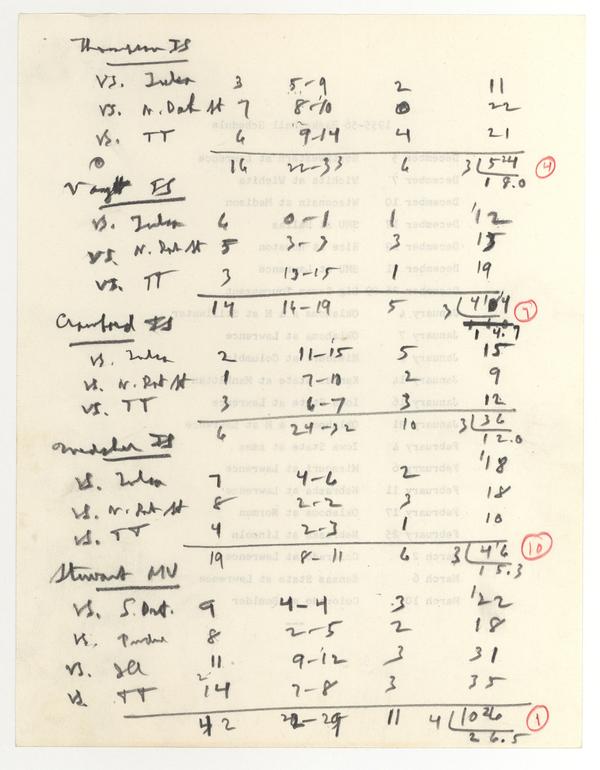 Thompson IS
vs. Indiana 3 5-9 2 11
vs. N. Dak St 7 8-10 0 22
vs. TT 6 9-14 4 21
16 22-33 6 3 524 4
18.0
IS
vs. Indiana 6 0-1 1 12
vs. N. Dak St 5 3-3 3 13
vs. TT 3 13-15 1 19
14 16-19 5 3 7
14.7
Crawford IS
vs. Indiana 2 11-15 5 15
vs. N. Dak St 1 7-10 2 9
vs. TT 3 6-7 3 12
6 24-32 10 3 36
12.0
IS
vs. Indiana 7 4-6 2 18
vs. N. Dak St 8 2-2 3 18
vs. TT 4 2-3 1 10
19 8-11 6 3 46 10
15.3
Stewart MV
vs. S. Dak. 9 4-4 3 22
vs. Purdue 8 2-5 2 18
vs. 11 9-12 3 31
vs. TT 14 7-8 3 35
42 22-29 11 4 106 1
26.5